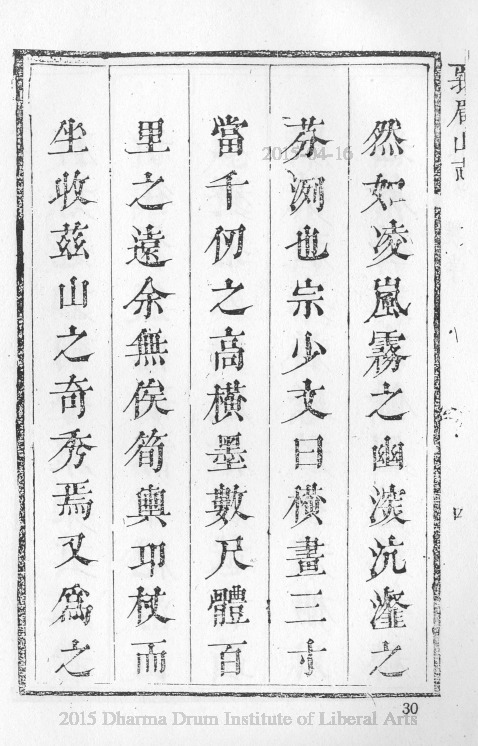 峩眉山志
然如凌嵐霧之幽濛沆瀣之
芬冽也宗少文曰橫畫三寸
當千仞之高橫墨數尺體百
里之遠余無俟筍輿卭杖而
坐收茲山之奇秀焉又爲之
2015-04-16
30
2015 Dharma Drum Institute of Liberal Arts